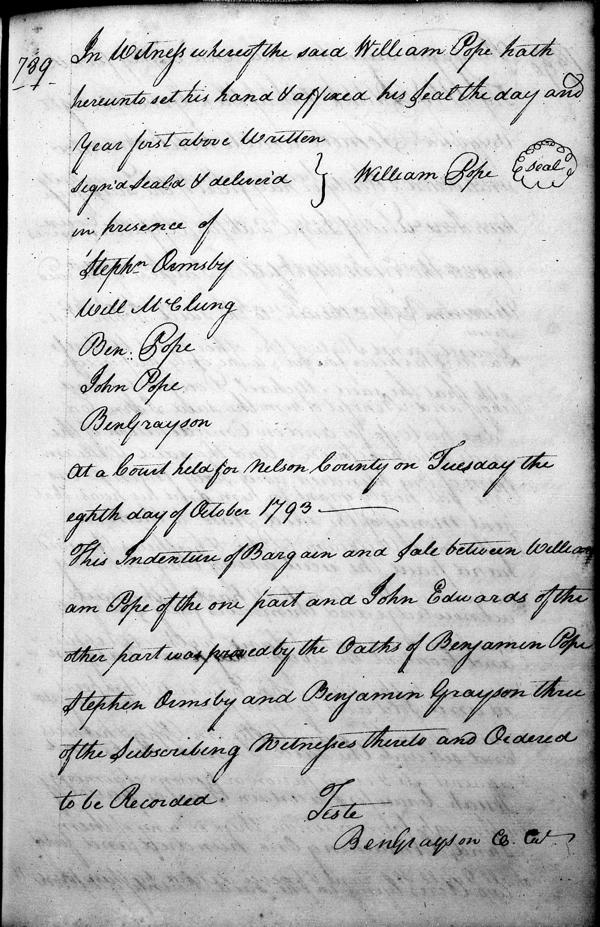 789
In Witness whereof the said William Pope hath
hereunto set his hand & affixed his Seal the day and
Year first above Written
Sign'd Seal'd & deliver'd } William Pope Seal
in presence of
Stephn. Ormsby
Will McClung
Ben: Pope
John Pope
BenGrayson
At a Court held for Nelson County on Tuesday the
eighth day of October 1793
This Indenture of Bargain and Sale between William
am Pope of the one part and John Edwards of the
other part was proved by the Oaths of Benjamin Pope
Stephen Ormsby and Benjamin Grayson three
of the Subscribing Witnesses thereto and Ordered
to be Recorded.
Teste
BenGrayson